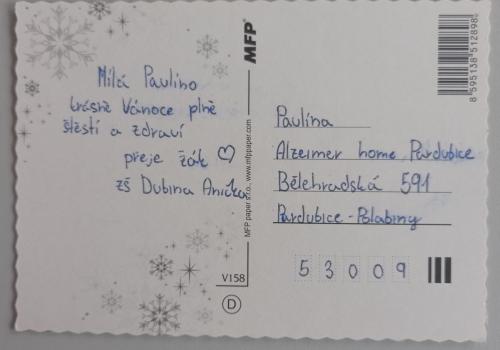 Milá Paulíno
krásné Vánoce plné
štěstí a zdraví
přeje žák ♡
ZŠ Dubina Anička
MFP
MFP paper s.r.o., www.mfppaper.com
V158
D
8595138512898
Paulína
Alzeimer home Pardubice
Bělehradská 591
Pardubice - Polabiny
53009